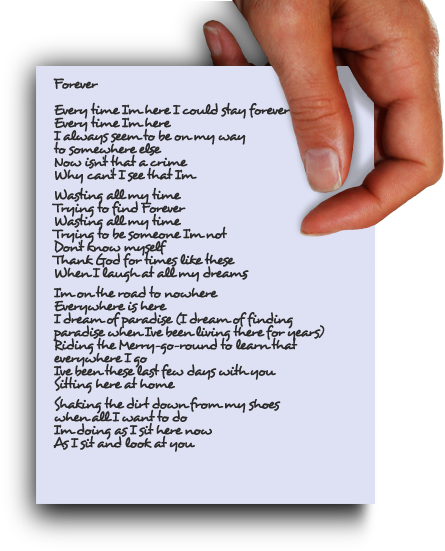 Forever
Every time Im here I could stay forever
Every time Im here
I always seem to be on my way
to somewhere else
Now isn't that a crime
Why can't I see that Im
Wasting all my time
Trying to find Forever
Wasting all my time
Trying to be someone Im not
Don't know myself
Thank God for times like these
When I laugh at all my dreams
Im on the road to nowhere
Everywhere is here
I dream of paradise (I dream of finding
paradise when Ive been living there for years)
Riding the Merry-go-round to learn that
everywhere I go
Ive been these last few days with you
Sitting here at home
Shaking the dirt down from my shoes
when all I want to do
Im doing as I sit here now
As I sit and look at you